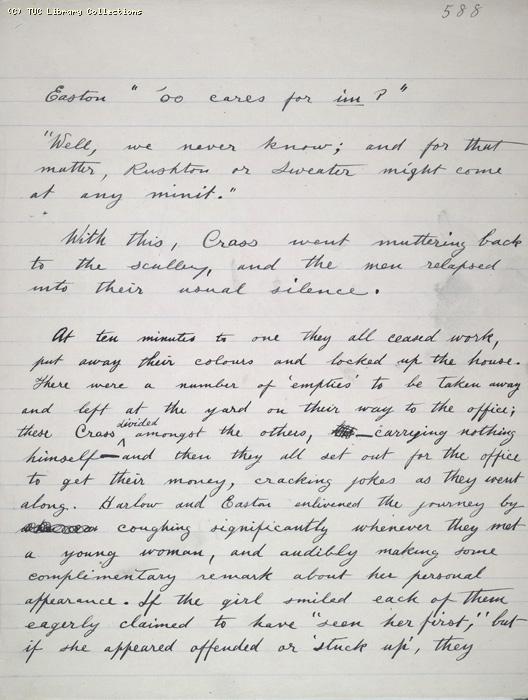 (C) TUC Library Collections
588
Easton " 'oo cares for im ? "
"Well, we never know; and for that
matter, Rushton or Sweater might come
at any minit."
With this, Crass went muttering back
to the scullery, and the men relapsed
into their usual silence.
At ten minutes to one they all ceased work,
put away their colours and locked up the house.
There were a number of 'empties' to be taken away
and left at the yard on their way to the office;
these Crass divided amongst the others, — carrying nothing
himself — and then they all set out for the office
to get their money, cracking jokes as they went
along. Harlow and Easton enlivened the journey by
coughing significantly whenever they met
a young woman, and audibly making some
complimentary remark about her personal
appearance. If the girl smiled each of them
eagerly claimed to have "seen her first," but
if she appeared offended or 'stuck up', they